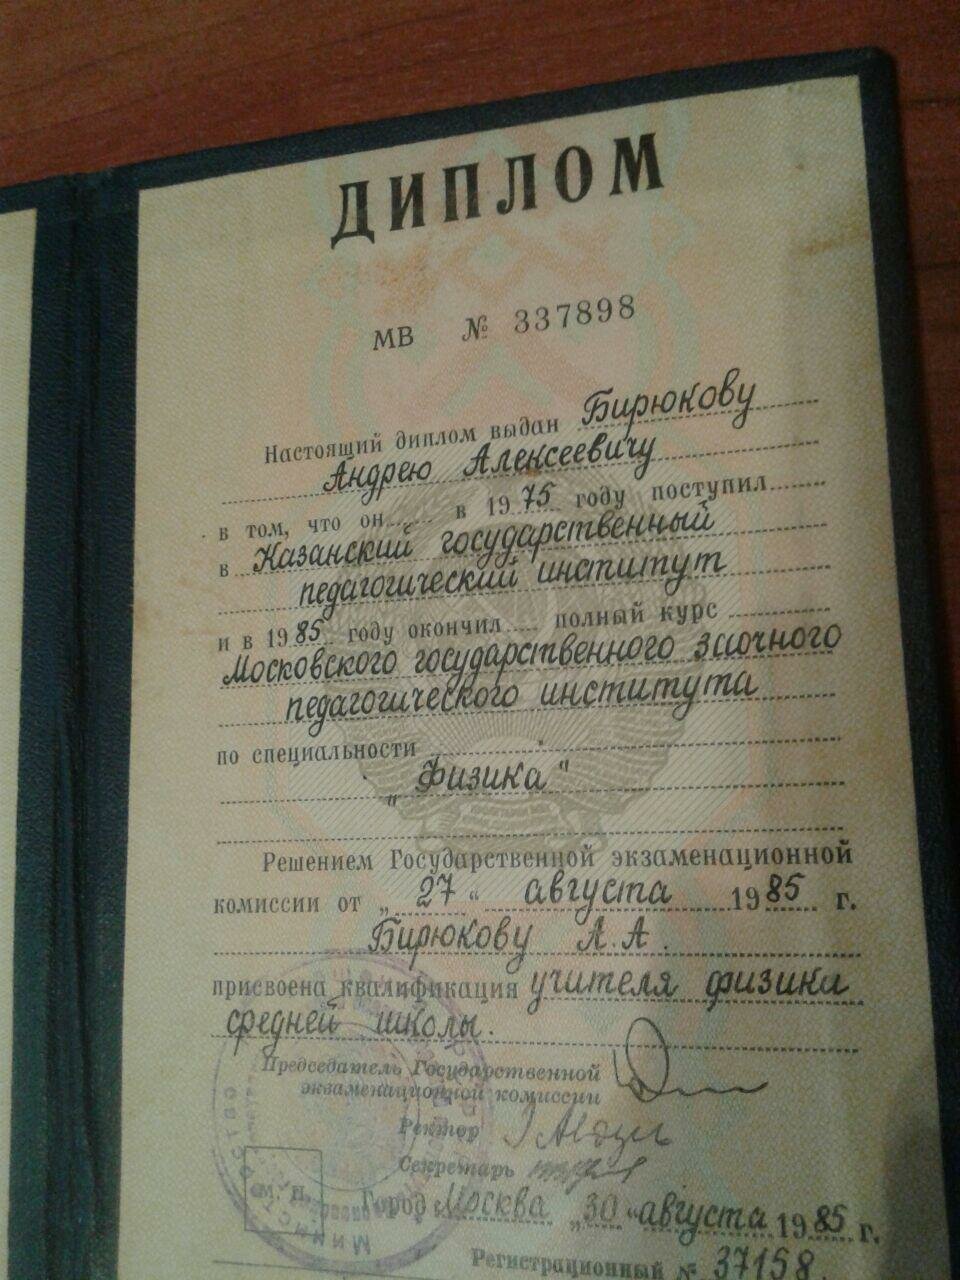 ДИПЛОМ
МВ № 337898
Настоящий диплом выдан Бирюкову
Андрею Алексеевичу
в том, что он в 1975 году поступил
в Казанский государственный
педагогический институт
и в 1985 году окончил полный курс
Московского государственного заочного
педагогического института
по специальности
„Физика"
Решением Государственной экзаменационной
комиссии от „27" августа 1985 г.
Бирюкову А.А.
присвоена квалификация учителя физики
средней школы.
Председатель Государственной
экзаменационной комиссии
Ректор
Секретарь
М. П.
Город Москва „30" августа 1985 г.
Регистрационный № 37158